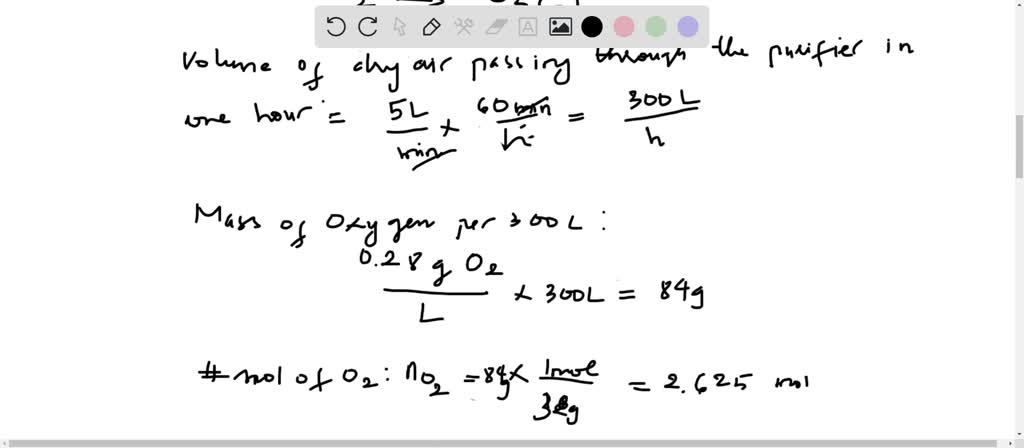 Volume of dry air passing through the purifier in
one hour = 5L/min × 60 min/h = 300 L/h
Mass of Oxygen per 300L :
0.28 g O₂/L × 300L = 84g
# mol of O₂ : nO₂ = 84g × 1mole/32g = 2.625 mol